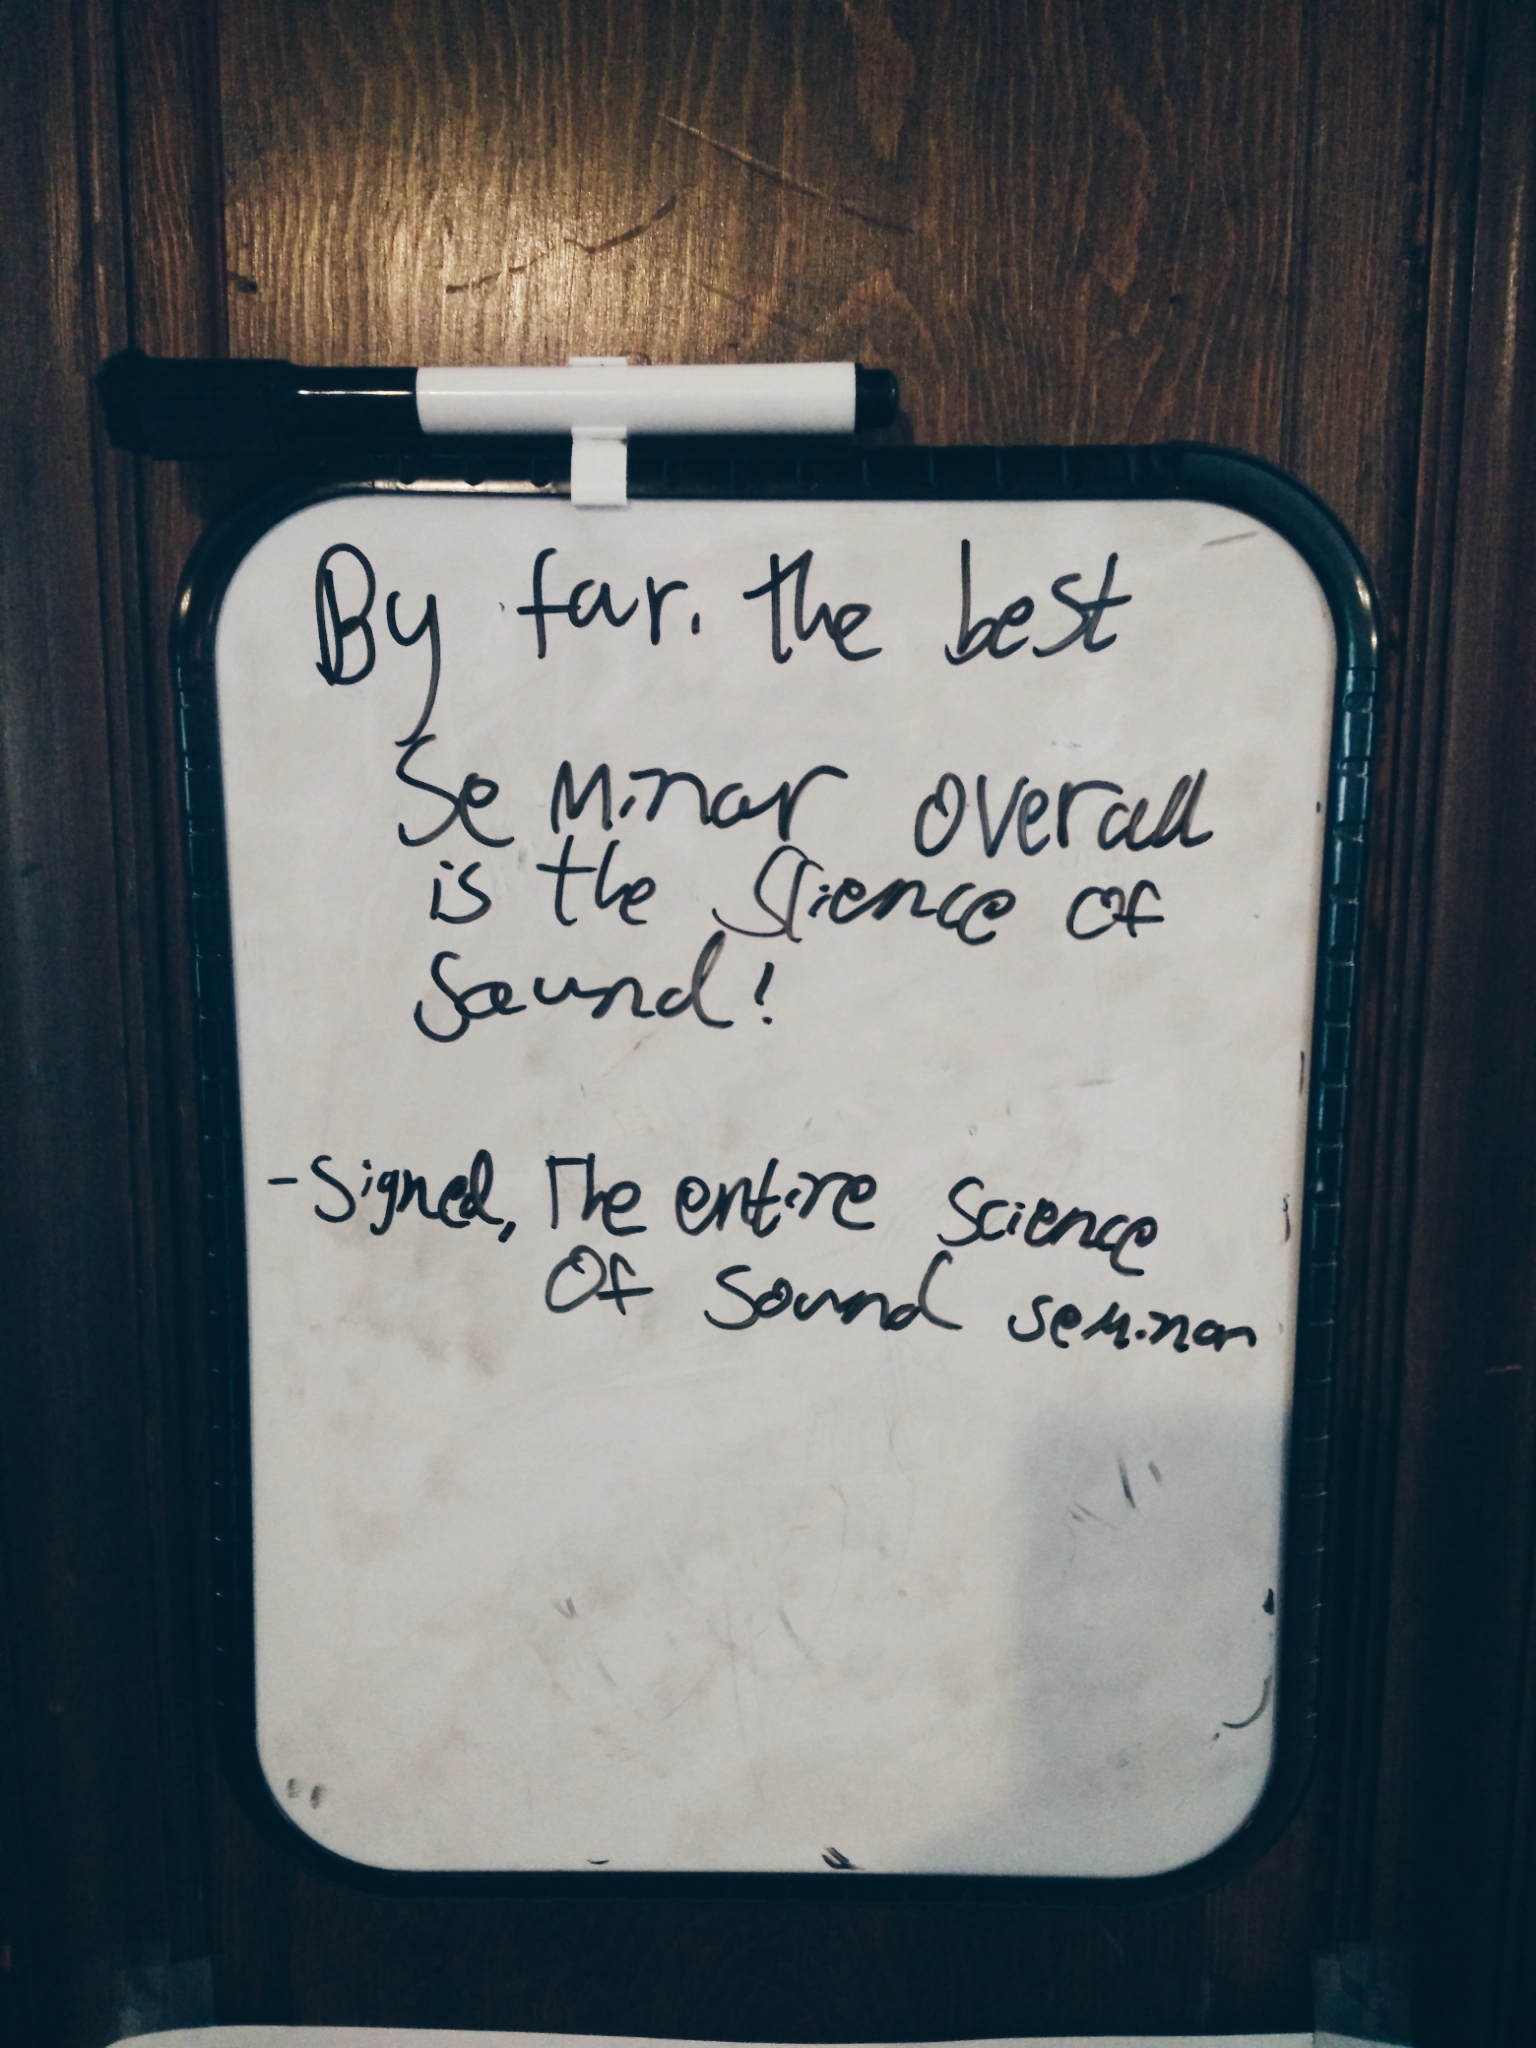 By far. the best
Seminar overall
is the Science of
Sound!
- Signed, The entire Science
Of Sound seminar